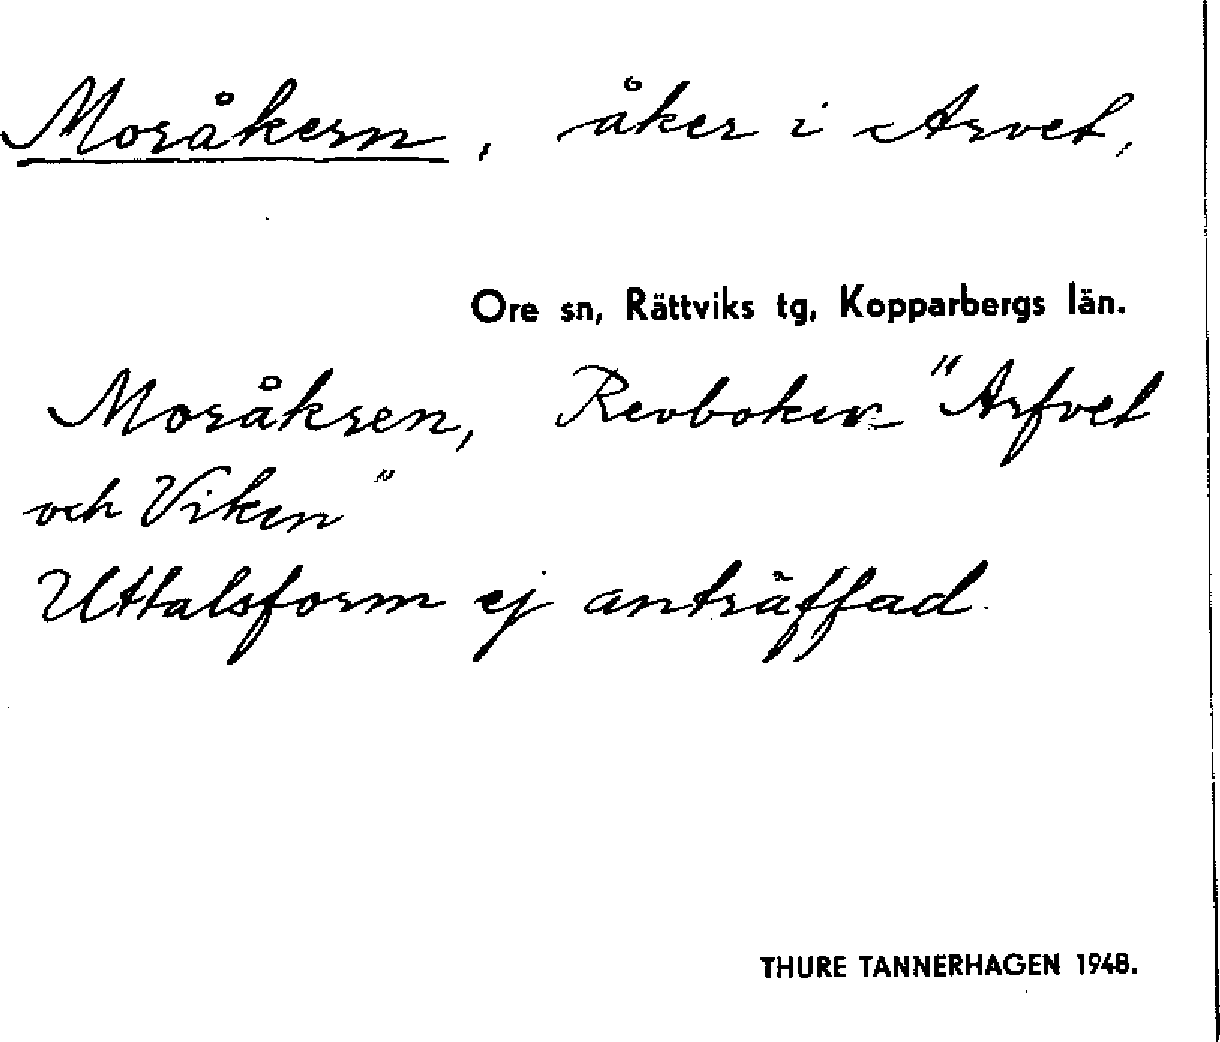 Moråkern, åker i Arvet,
Ore sn, Rättviks tg, Kopparbergs län.
Moråkren, Revboken "Arfvet
och Viken"
Uttalsform ej anträffad.
THURE TANNERHAGEN 1948.